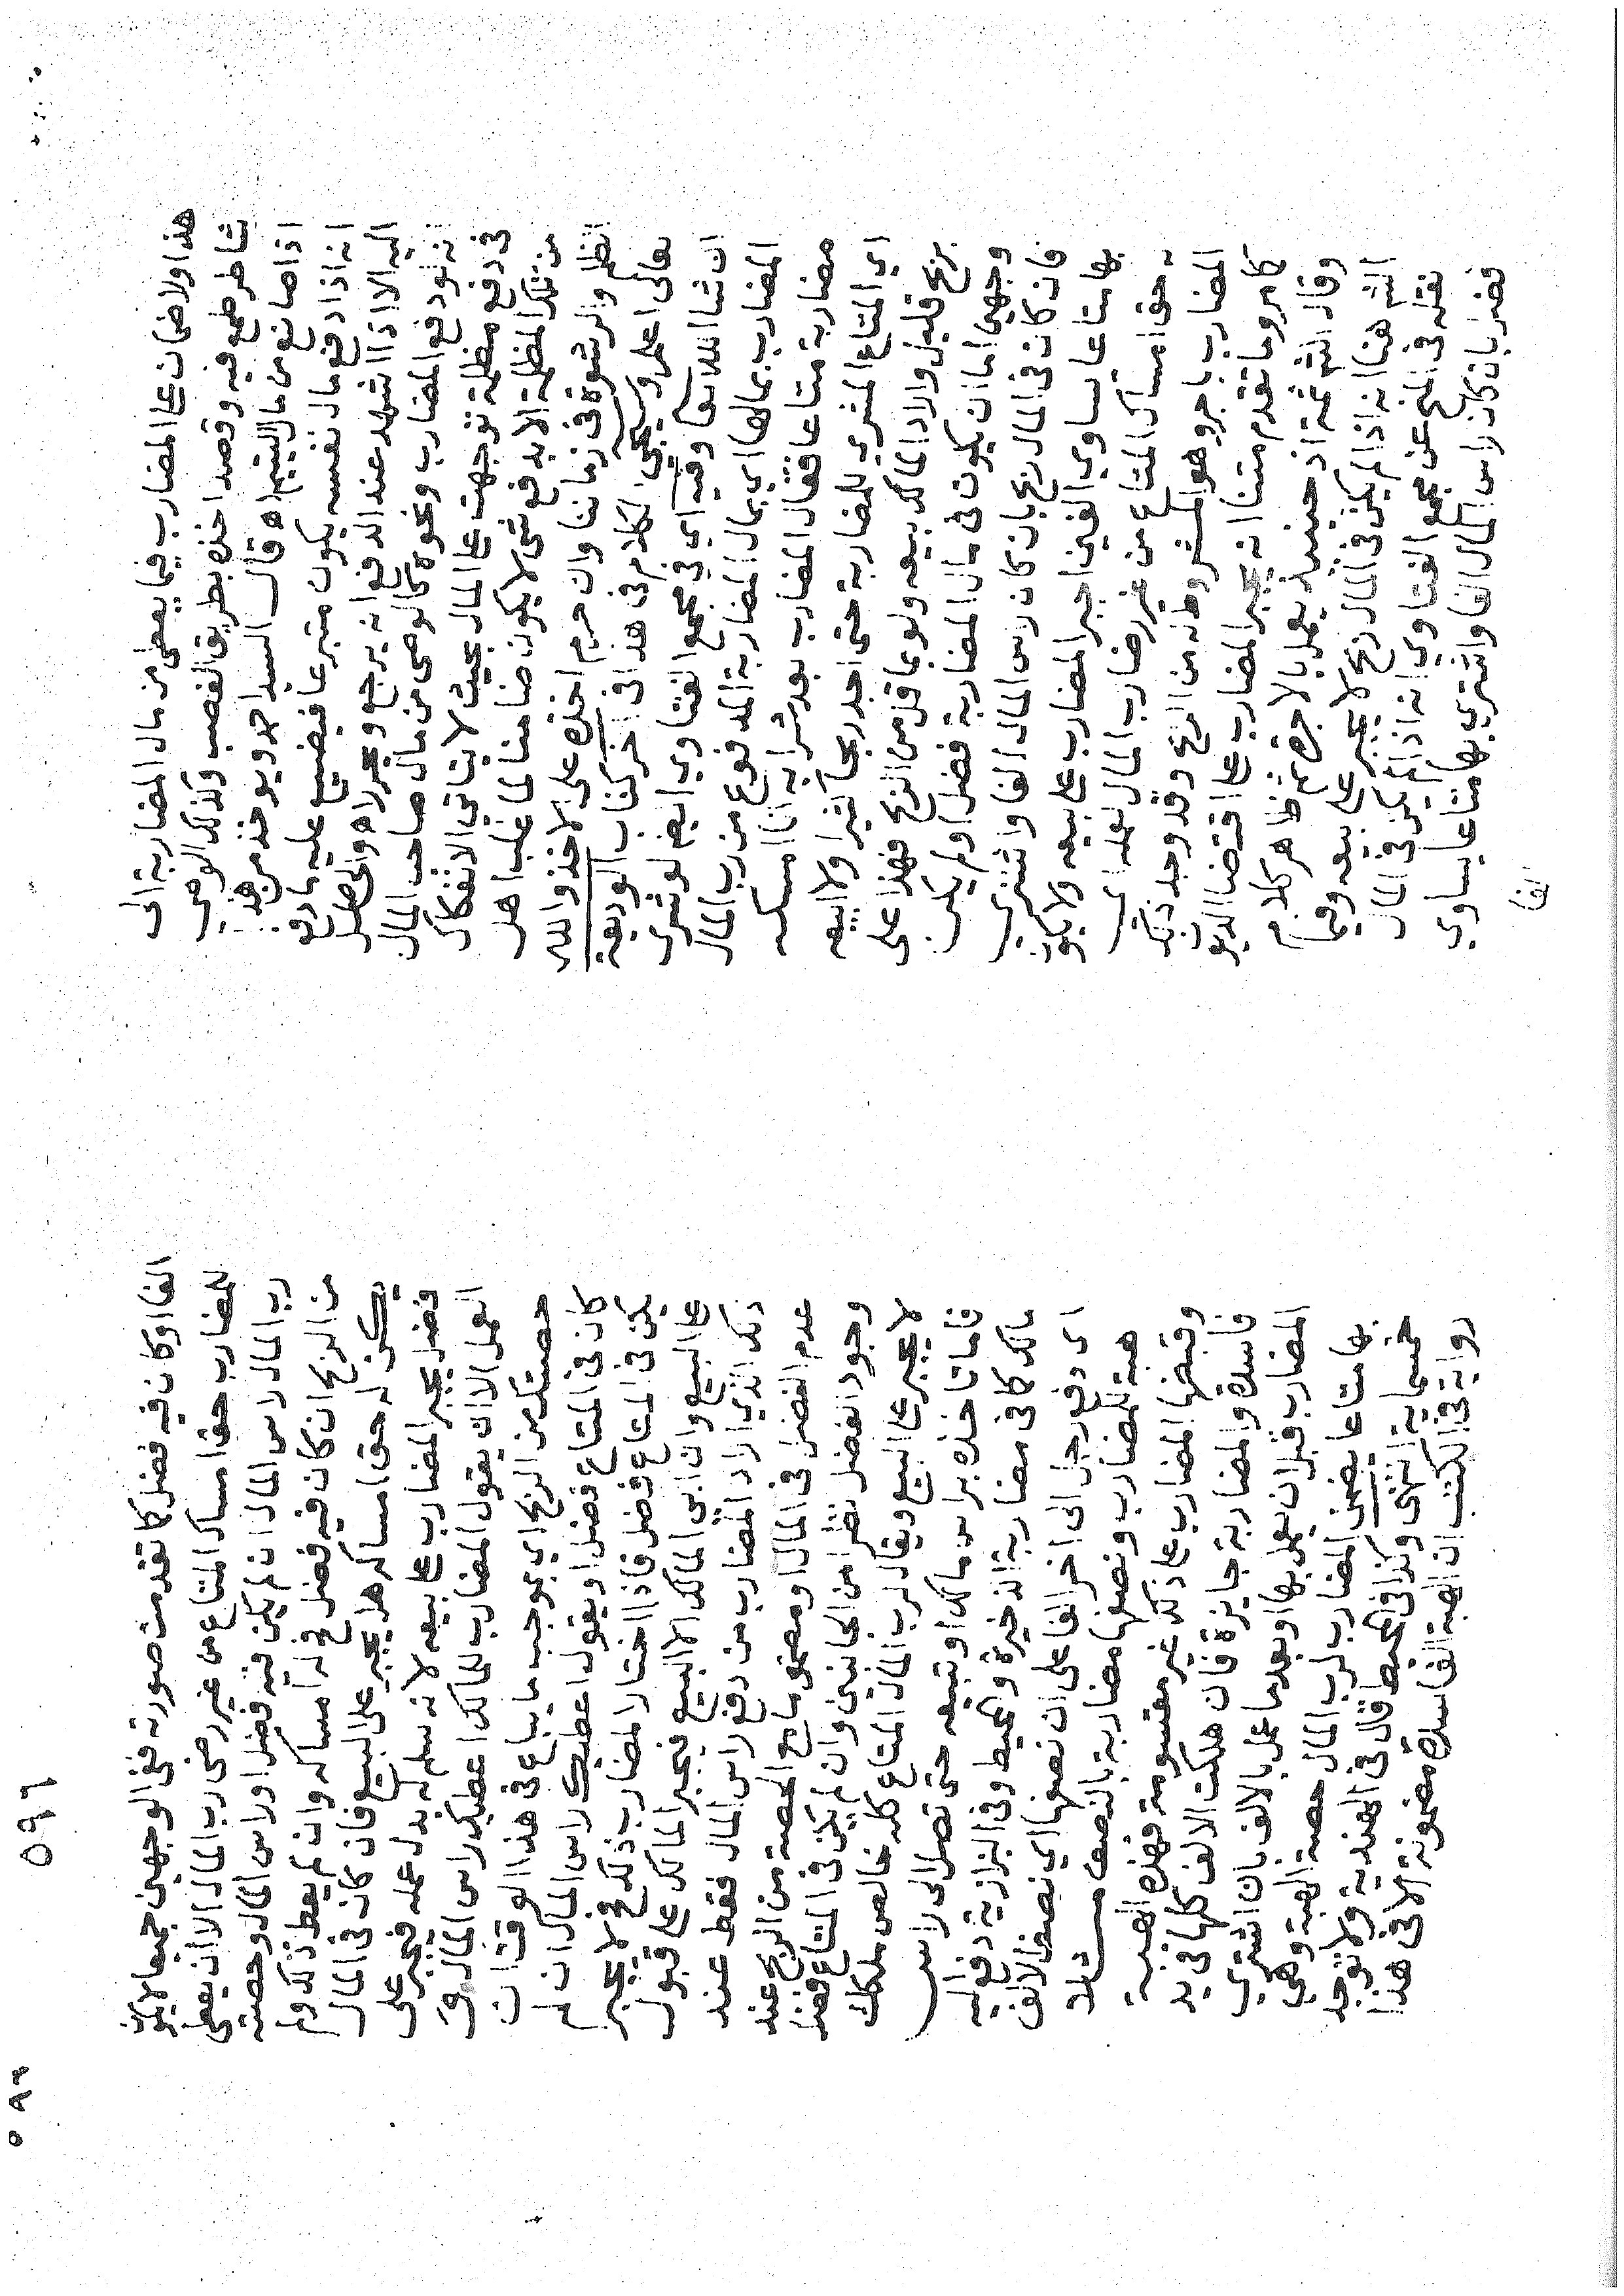 هذا ولا ضمان على المضارب فيما يعطى من مال المضاربة الى
شاطر طمع فيه وقصد اخذه بطريق الغصب وكذلك الوصى
اذا صانع من مال اليتيم اه قال السيد احمد ويوخذ من هذا
انه اذا دفع مال نفسه يكون متبرعا فيضيع عليه ما دفع
اليه الا اذا اشهد عند الدفع انه يرجع وبحرر اه والحاصل
انه لو دفع المضارب ونحوه كالوصى من مال صاحب المال
فى دفع مظلمة توجهت على المال بحيث لا يتاتى الانفكاك
من تلك المظلمة الا بدفع شى لا يكون ضامنا لما غلب اهل
الظلم والرشوة فى زماننا وان حرم اخذه على الاخذ والله
تعالى اعلم وسيجى الكلام فى هذا فى اخر كتاب الوديعة
ان شا الله تعا وفيه اي في مجمع الفتاوي ايضم لو شرى
المضارب بمالها اي بمال المضاربة المدفوع من رب المال
مضاربة متاعا فقال المضارب بعد شرايه انا امسكه
اي المتاع المشرى للمضاربة حتى اجد ربحا كثيرا ولا ابيعه
بربح قليل واراد المالك بيعه ولو بما قل من الربح فهذا على
وجهين اما ان يكون فى مال المضاربة فضل او لم يكن
فان كان فى المال ربح بان كان راس المال الفا واشترى
بها متاعا يساوي الفين اجبر المضارب على بيعه ولا يكون
له حق امساك المتاع من غير رضا رب المال لعمله اى
المضارب باجر وهو المشروط له من الربح وقد وجد ذلك
كما مر وما تقدم متنا انه يجبر المضارب على اقتضا الديون
وقال الشم ثمة اذ حينيذ يعمل بالاجرة ثم ظاهر كلام
الشم هنا انه اذا لم يكن فى المال ربح لا يجبر على بيعه وفيما
نقله فى المنح عن مجمع الفتاوي انه اذا لم يكن فى المال
فضل بان كان راس المال الفا واشتري بها متاعا يساوي
الفا
٥٩٦
٥٩٦
الفا او كان فيه فضل كما تقدمت صورته ففى الوجهين جميعا لا يكون
للمضارب حق امساك المتاع من غير رضى رب المال الا ان يعطى
رب المال راس المال ان لم يكن فيه فضل او راس المال وحصته
من الربح ان كان فيه فضل فح له امساكه وان لم يعط ذلك ولم
يكن له حق امساكه هل يجبر على البيع فان كان فى المال
فضل يجبر المضارب على بيعه لانه سلم له بدل عمله فيجبر على
العمل الا ان يقول المضارب للمالك اعطيك راس المال و
حصتك من الربح اي بموجب ما يباع فى هذا الوقت ان
كان فى المتاع فضل او يقول اعطيك راس المال ان لم
يكن فى المتاع فضل فاذا اختار المضارب ذلك فح لا يجبر
على البيع وان ابى المالك الا البيع فيجبر المالك على قبول
ذلك الذي اراد المضارب من دفع راس المال فقط عند
عدم الفضل فى المال او مصحوبا مع الحصة من الربح عند
وجود الفضل نظرا من الجانبين وان لم يكن فى المتاع فضل
لا يجبر على البيع ويقال لرب المال المتاع كله خالص ملكك
فاما تاخذه براس مالك او تبيعه حتى تصل الى راس
مالك كما فى مضاربة الذخيرة والمحيط وفى البزازية دفع اليه
اى دفع رجل الى اخر الفا على ان نصفها اي نصف الالف
هبة للمضارب ونصفها مضاربة بالنصف مثلا
وقبضها المضارب على ذلك غير مقسومة فهذه الهبة
فاسدة والمضاربة جايزة فان هلكت الالف كلها فى يد
المضارب قبل ان يعمل بها او بعد ما عمل بالالف بان اشتري
بها متاعا يضمن المضارب لرب المال حصة الهبة وهي
خمسماية انتهى وكذا فى المحيط قال فى الهندية ولا توجد
رواية فى الكتب ان الهبة الفاسدة مضمونة الا فى هذا